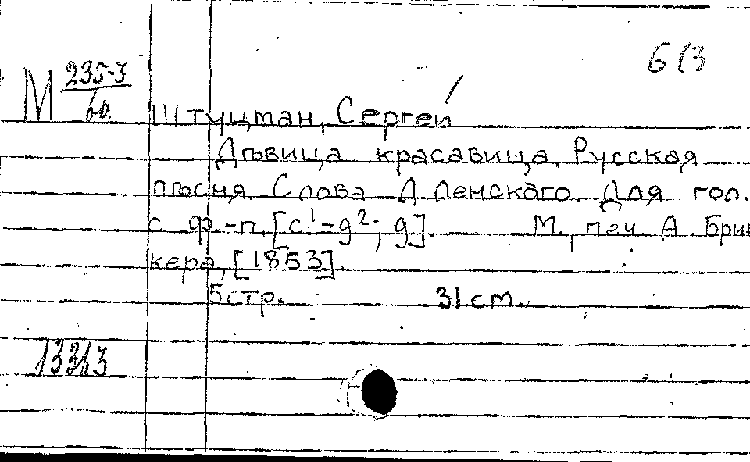 613
М 235-3
60.
Штуцман, Сергей
Дѣвица красавица. Русская
пѣсня. Слова Д. Ленскаго. Для гол.
с ф.-п. [c¹-g²; g]. М., печ. А. Брин
кера, [1853].
5 стр. 31 см.
13313